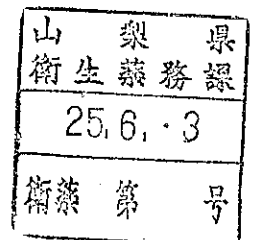 山梨県
衛生薬務課
25.6.-3
衛薬第号